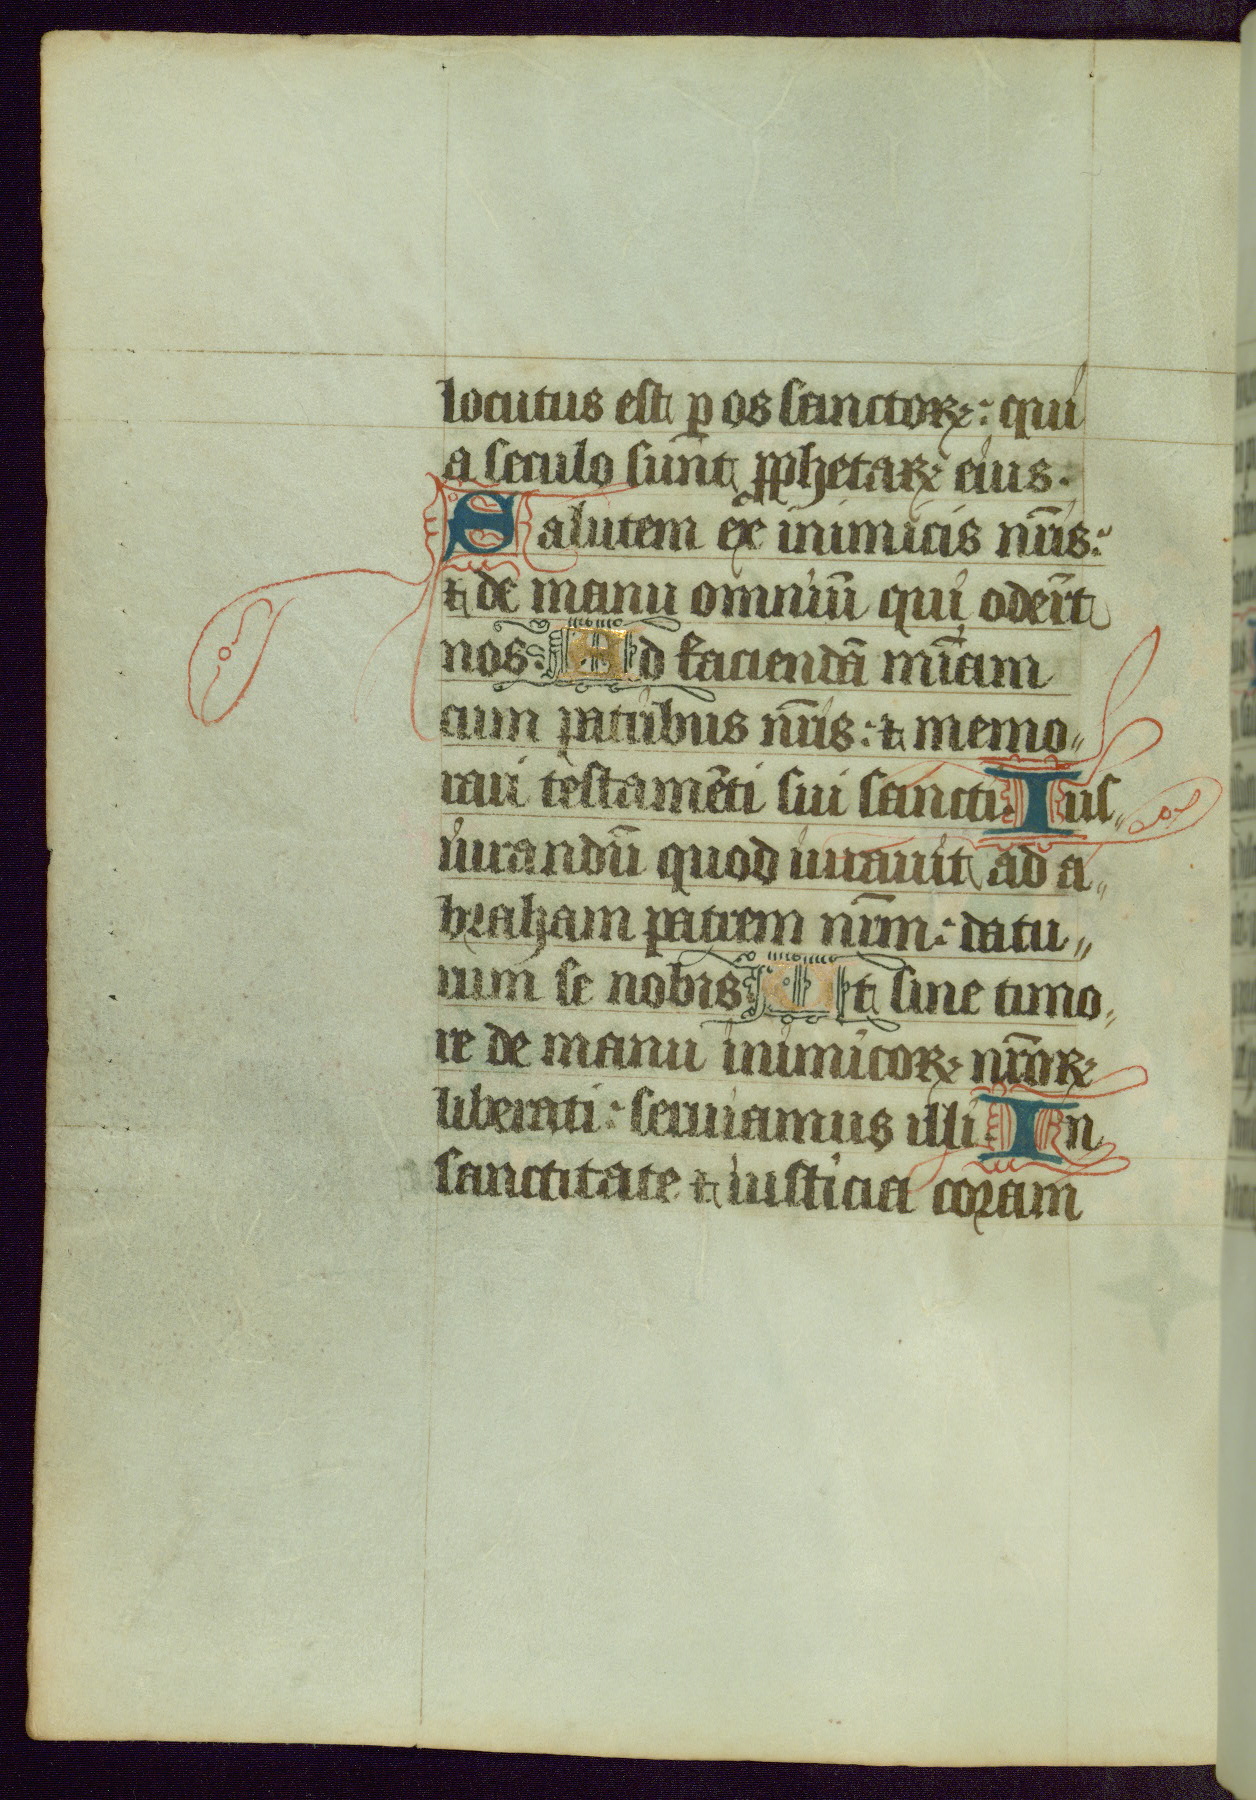 locutus est p os sanctoꝝ: qui
a seculo sunt pphetaꝝ eius.
Salutem ex inimicis nr̄is:
⁊ de manu omniū qui oder̄t
nos. Ad faciendā mīam
cum patribus nr̄is: ⁊ memo〃
rari testamēti sui sancti. Ius〃
iurandū quod iurauit ad a〃
braham patrem nr̄m: datu〃
rum se nobis Ut sine timo〃
re de manu inimicoꝝ nr̄oꝝ
liberati: seruiamus illi. In
sanctitate ⁊ iusticia coram